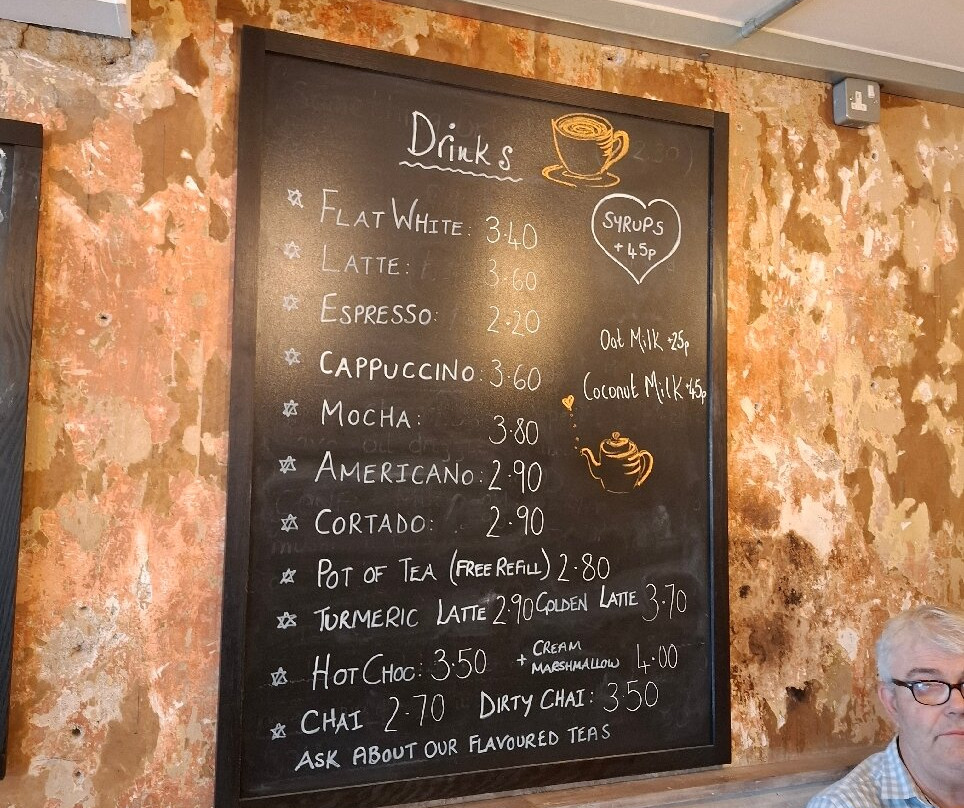 Drinks
FLAT WHITE: 3.40
SYRUPS
+45p
LATTE: 3.60
ESPRESSO: 2.20
Oat Milk +25p
CAPPUCCINO: 3.60
Coconut Milk +45p
MOCHA: 3.80
AMERICANO: 2.90
CORTADO: 2.90
POT OF TEA (FREE REFILL) 2.80
TURMERIC LATTE 2.90 GOLDEN LATTE 3.70
HOT CHOC: 3.50 + CREAM
MARSHMALLOW 4.00
CHAI 2.70 DIRTY CHAI: 3.50
ASK ABOUT OUR FLAVOURED TEAS